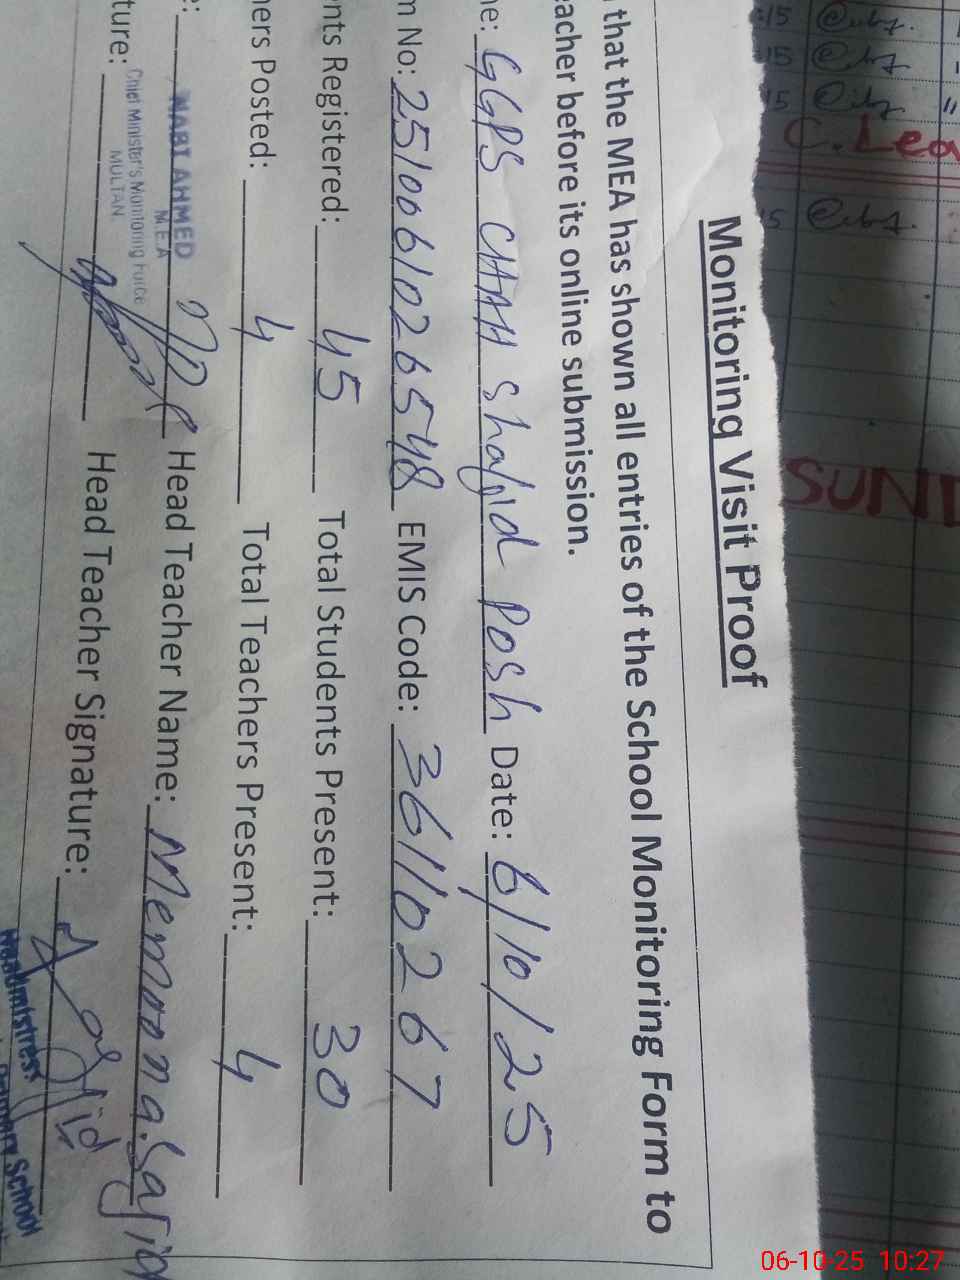 Monitoring Visit Proof
that the MEA has shown all entries of the School Monitoring Form to
eacher before its online submission.
ne: GGPS CHAH Shajid Posh Date: 6/10/25
m No: 2510061026548 EMIS Code: 36110267
nts Registered: 45 Total Students Present: 30
ners Posted: 4 Total Teachers Present: 4
e: NABI AHMED Head Teacher Name: Memoona Sajid
M.E.A
Chief Minister's Monitoring Force
MULTAN
ture: Head Teacher Signature:
Headmistress
Primary School
:15
15
15
C. Lea
15
SUND
06-10-25 10:27